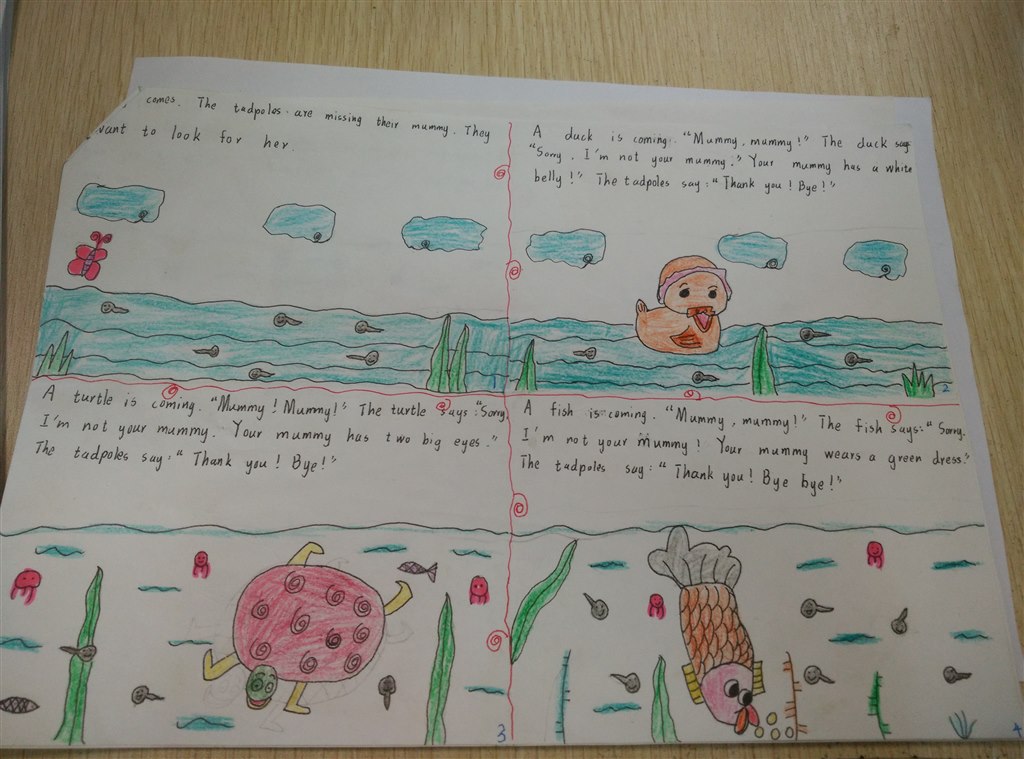 comes. The tadpoles are missing their mummy. They
want to look for her.
1
A duck is coming. "Mummy, mummy!" The duck say
"Sorry, I'm not your mummy." Your mummy has a white
belly!" The tadpoles say: "Thank you! Bye!"
2
A turtle is coming. "Mummy! Mummy!" The turtle says: "Sorry,
I'm not your mummy. Your mummy has two big eyes."
The tadpoles say: "Thank you! Bye!"
3
A fish is coming. "Mummy, mummy!" The fish says: "Sorry.
I'm not your mummy! Your mummy wears a green dress."
The tadpoles say: "Thank you! Bye bye!"
4